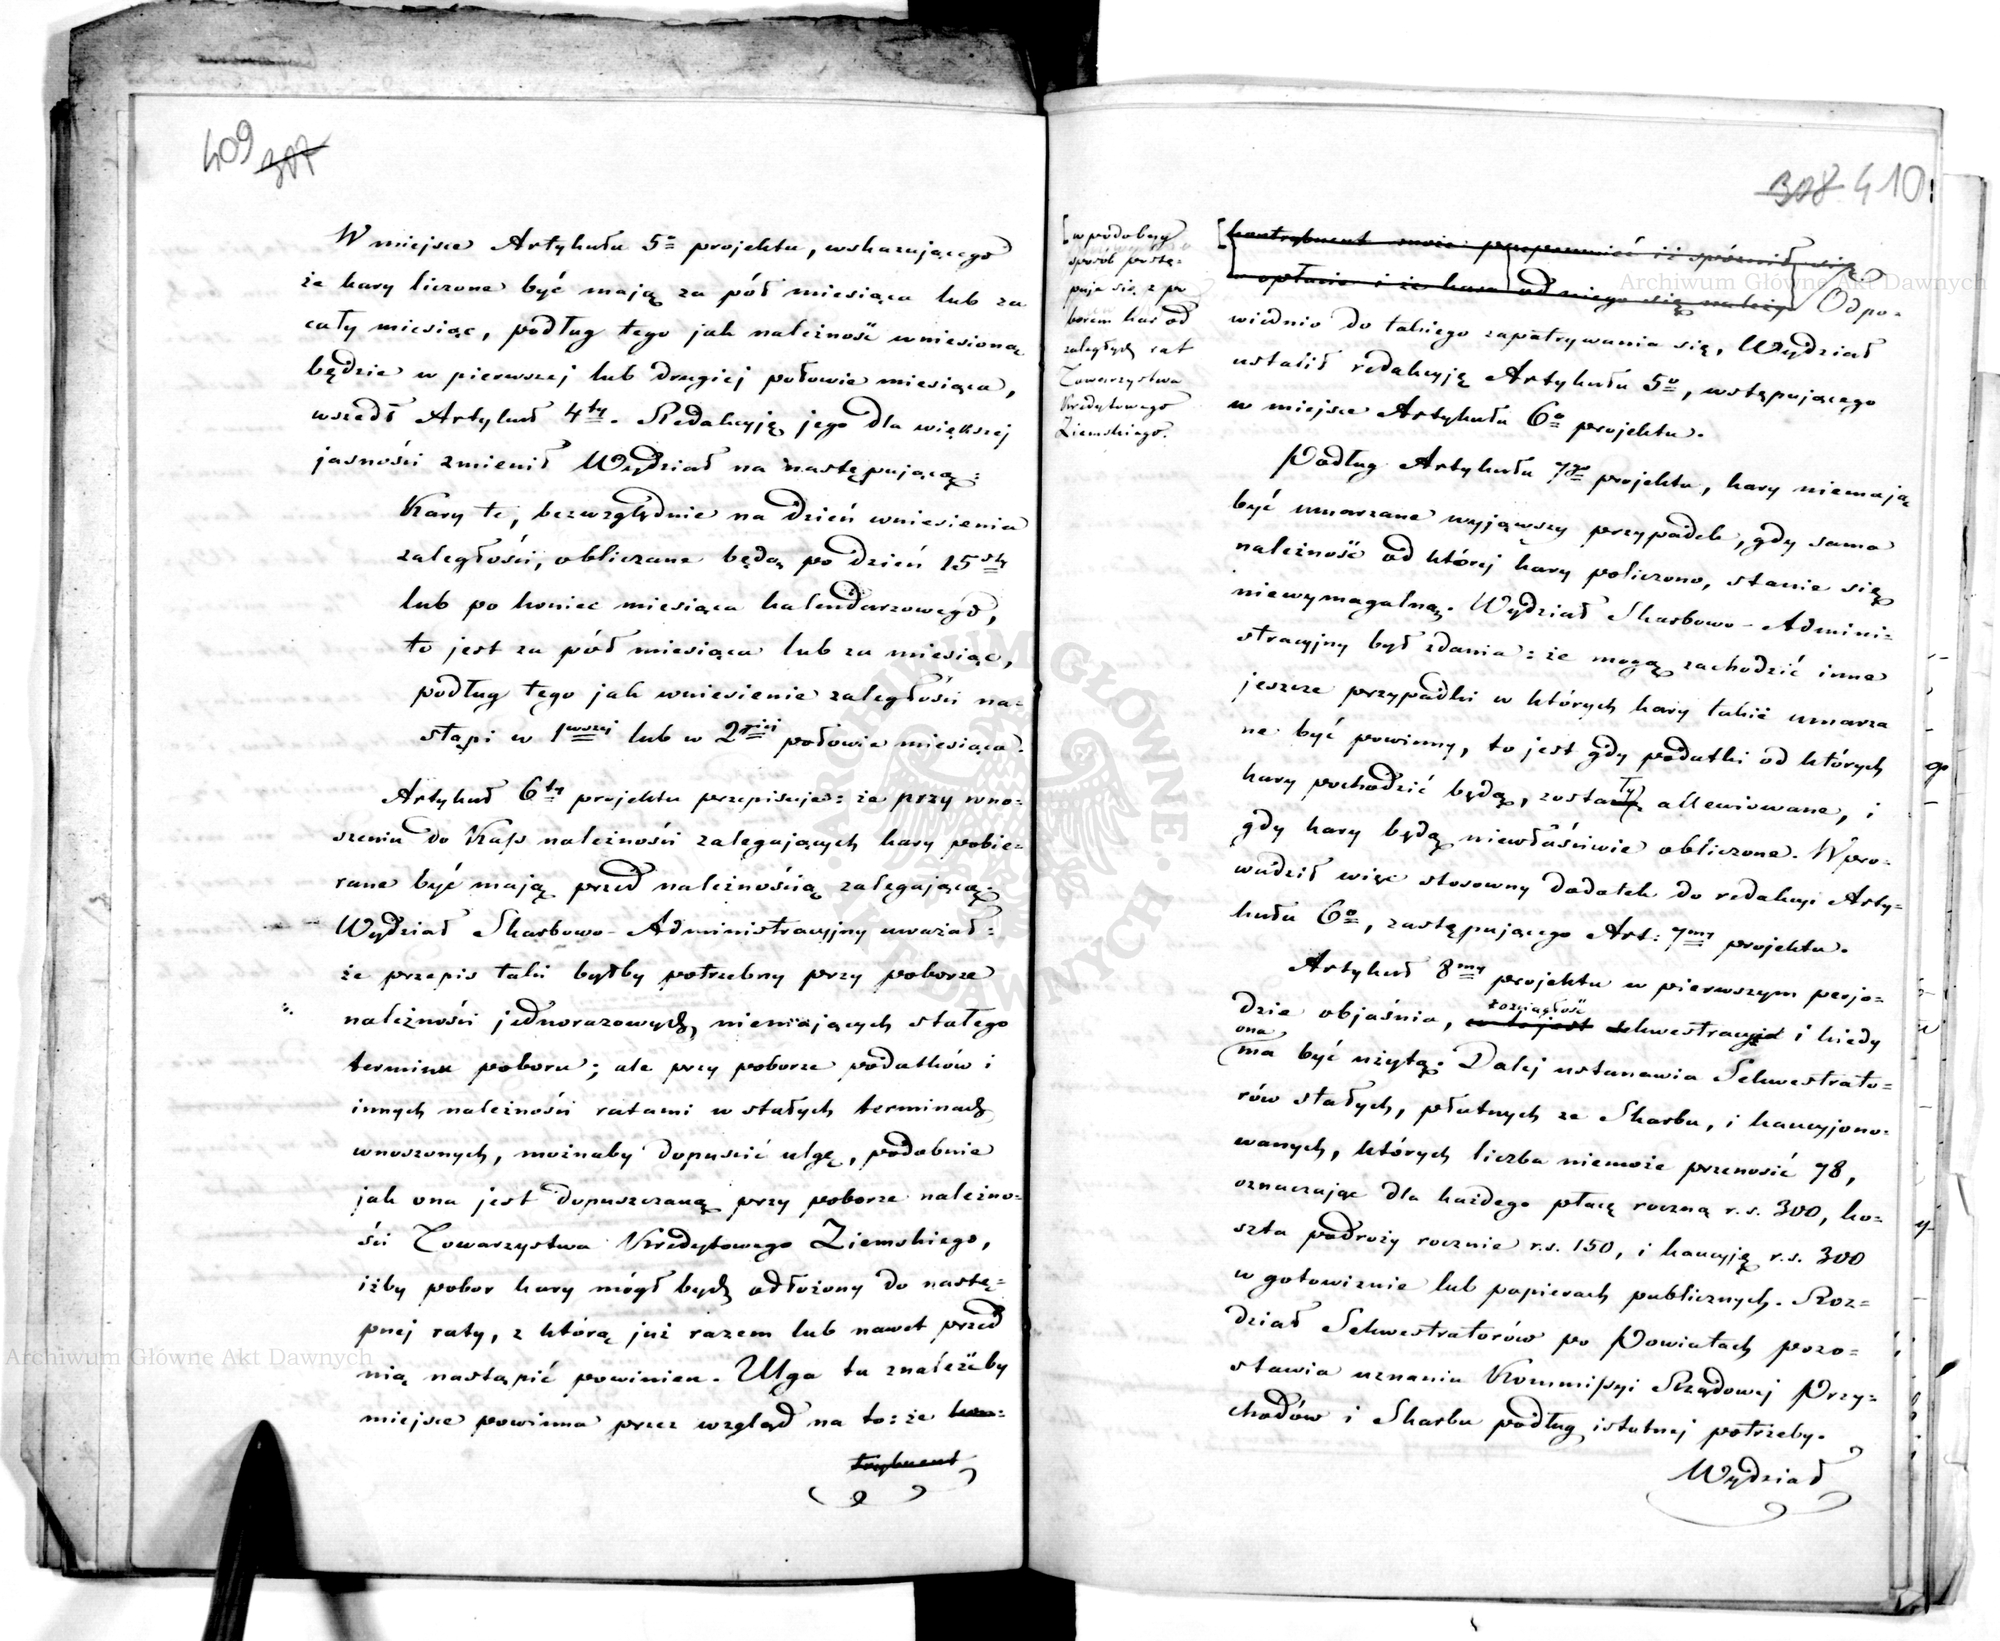 409 307
W miejsce Artykułu 5º projektu, wskazującego
że kary liczone być mają za pół miesiąca lub za
cały miesiąc, podług tego jak należność wniesioną
będzie w pierwszej lub drugiej połowie miesiąca,
wszedł Artykuł 4ty. Redakcyję jego dla większej
jasności zmienił Wydział na następującą:
Kary te, bezwzględnie na dzień wniesienia
zaległości, obliczane będą po dzień 15sty
lub po koniec miesiąca kalendarzowego,
to jest za pół miesiąca lub za miesiąc,
podług tego jak wniesienie zaległości na=
stąpi w 1wszej lub w 2giej połowie miesiąca.
Artykuł 6ty projektu przepisuje: że przy wno=
szeniu do Kass należności zalegających kary pobie=
rane być mają przed należnością zalegającą.
Wydział Skarbowo-Administracyjny uważał:
że przepis taki byłby potrzebny przy poborze
należności jednorazowych, niemających stałego
terminu poboru; ale przy poborze podatków i
innych należności ratami w stałych terminach
wnoszonych, możnaby dopuścić ulgę, podobnie
jak ona jest dopuszczaną przy poborze należno=
ści Towarzystwa Kredytowego Ziemskiego,
iżby pobor kary mógł bydź odłożony do nastę=
pnej raty, z którą już razem lub nawet przed
nią nastąpić powinien. Ulga ta znaleźćby
miejsce powinna przez wzgląd na to: że kon=
trybuent
308 410
w podobny
sposób postę=
puje się z po
borem kar od
zaległych rat
Towarzystwa
Kredytowego
Ziemskiego.
kontrybuent może przepomnieć iż spóźnił się
w opłacie i że kara od niego się należy Odpo=
wiednio do takiego zapatrywania się, Wydział
ustalił redakcyję Artykułu 5º, wstępującego
w miejsce Artykułu 6º projektu.
Podług Artykułu 7go projektu, kary niemają
być umarzane wyjąwszy przypadek, gdy sama
należność od której kary policzono, stanie się
niewymagalną. Wydział Skarbowo-Admini=
stracyjny był zdania: że mogą zachodzić inne
jeszcze przypadki w których kary takie umarza
ne być powinny, to jest gdy podatki od których
kary pochodzić będą, zostały allewiowane, i
gdy kary będą niewłaściwie obliczone. Wpro=
wadził więc stosowny dodatek do redakcyi Arty=
kułu 6º, zastępującego Art: 7my projektu.
Artykuł 8my projektu w pierwszym perjo=
rozciągłość
dzie objaśnia, co to jest sekwestracyja i kiedy
ona
ma być użytą. Dalej ustanawia Sekwestrato=
rów stałych, płatnych ze Skarbu, i kaucyjono=
wanych, których liczba niemoże przenosić 78,
oznaczając dla każdego płacę roczną r.s. 300, ko=
szta podróży rocznie r.s. 150, i kaucyję r.s. 300
w gotowiznie lub papierach publicznych. Roz=
dział Sekwestratorów po Powiatach pozo=
stawia uznaniu Kommissyi Rządowej Przy=
chodów i Skarbu podług istotnej potrzeby.
Wydział
Archiwum Główne Akt Dawnych
Archiwum Główne Akt Dawnych
ARCHIWUM GŁÓWNE AKT DAWNYCH